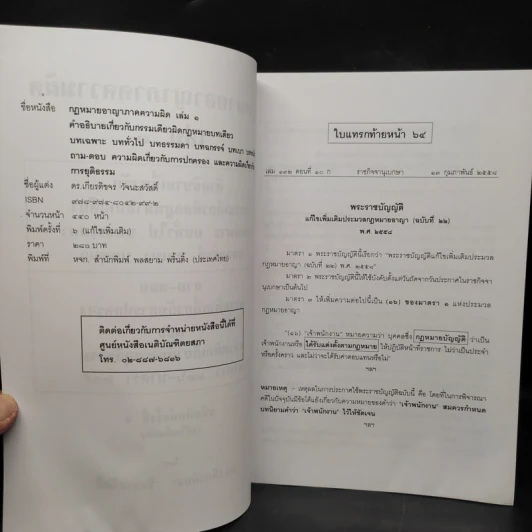 ชื่อหนังสือ กฎหมายอาญาภาคความผิด เล่ม ๑
คำอธิบายเกี่ยวกับกรรมเดียวผิดกฎหมายบทเดียว
บทเฉพาะ บททั่วไป บทธรรมดา บทฉกรรจ์ บทเบา
ถาม-ตอบ ความผิดเกี่ยวกับการปกครอง และความผิดเกี่ยวกับ
การยุติธรรม
ชื่อผู้แต่ง ดร.เกียรติขจร วัจนะสวัสดิ์
ISBN ๙๗๘-๙๗๔-๘๐๔๒-๙๙-๒
จำนวนหน้า ๔๔๐ หน้า
พิมพ์ครั้งที่ ๖ (แก้ไขเพิ่มเติม)
ราคา ๒๘๐ บาท
พิมพ์ที่ หจก. สำนักพิมพ์ พลสยาม พริ้นติ้ง (ประเทศไทย)
ติดต่อเกี่ยวกับการจำหน่ายหนังสือนี้ได้ที่
ศูนย์หนังสือเนติบัณฑิตยสภา
โทร. ๐๒-๘๘๗-๖๘๑๖
ใบแทรกท้ายหน้า ๖๔
เล่ม ๑๓๒ ตอนที่ ๑๐ ก ราชกิจจานุเบกษา ๑๓ กุมภาพันธ์ ๒๕๕๘
พระราชบัญญัติ
แก้ไขเพิ่มเติมประมวลกฎหมายอาญา (ฉบับที่ ๒๒)
พ.ศ. ๒๕๕๘
มาตรา ๑ พระราชบัญญัตินี้เรียกว่า "พระราชบัญญัติแก้ไขเพิ่มเติมประมวล
กฎหมายอาญา (ฉบับที่ ๒๒) พ.ศ. ๒๕๕๘"
มาตรา ๒ พระราชบัญญัตินี้ให้ใช้บังคับตั้งแต่วันถัดจากวันประกาศในราชกิจจา
นุเบกษาเป็นต้นไป
มาตรา ๓ ให้เพิ่มความต่อไปนี้เป็น (๑๖) ของมาตรา ๑ แห่งประมวล
กฎหมายอาญา
"(๑๖) "เจ้าพนักงาน" หมายความว่า บุคคลซึ่ง กฎหมายบัญญัติ ว่าเป็น
เจ้าพนักงานหรือ ได้รับแต่งตั้งตามกฎหมาย ให้ปฏิบัติหน้าที่ราชการ ไม่ว่าเป็นประจำ
หรือครั้งคราว และไม่ว่าจะได้รับค่าตอบแทนหรือไม่"
ฯลฯ
หมายเหตุ :- เหตุผลในการประกาศใช้พระราชบัญญัติฉบับนี้ คือ โดยที่ในการพิจารณา
คดีในปัจจุบันมีข้อโต้แย้งเกี่ยวกับความหมายของคำว่า "เจ้าพนักงาน" สมควรกำหนด
บทนิยามคำว่า "เจ้าพนักงาน" ไว้ให้ชัดเจน
ฯลฯ